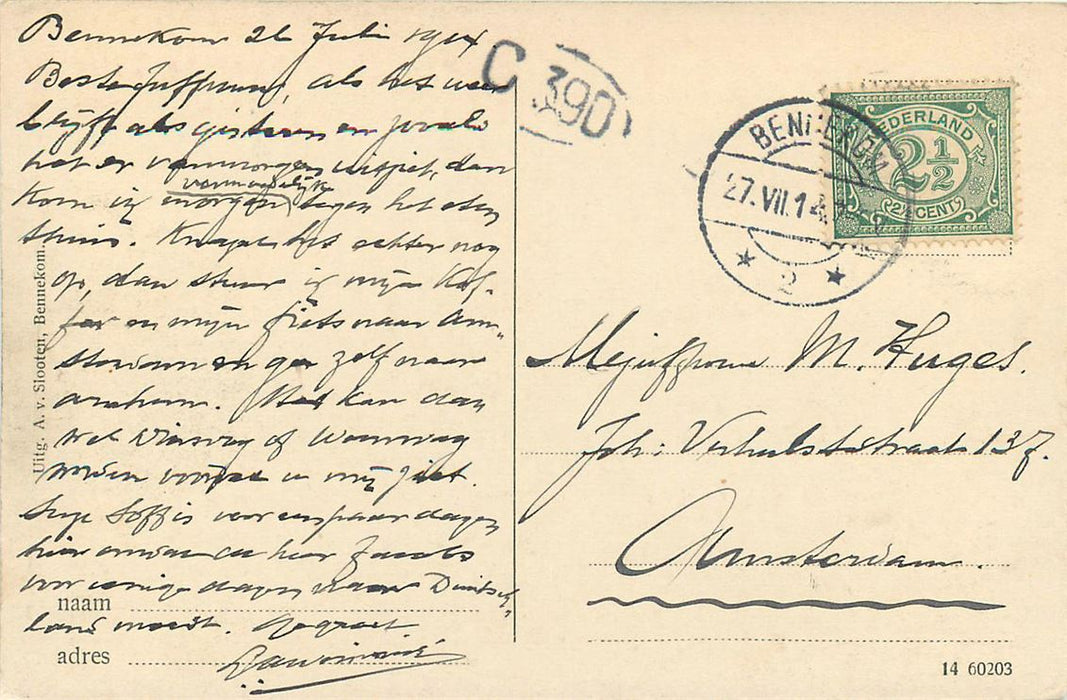 Bennekom 26 Juli 1914
Beste Juffrouw, als het weer
blijft als gisteren en zooals
het er vanmorgen uitziet, dan
vermoedelijk
kom ik morgen tegen het eten
thuis. Knapt het echter nog
op, dan stuur ik mijn kof-
fer en mijn fiets naar Am-
sterdam en ga zelf naar
Arnhem. Het kan dan
wel Dinsdag of Woensdag
worden voordat u mij ziet.
Soff is voor een paar dagen
hier omdat de heer Jacobs
voor eenige dagen naar Duitsch-
land moest. Gegroet
Uitg. A. v. Slooten, Bennekom
naam
adres
C 390
BENNEKOM
27.VII.14
2
NEDERLAND
2½
2½ CENT
Mejuffrouw M. Huges.
Joh: Verhulststraat 137.
Amsterdam.
14 60203